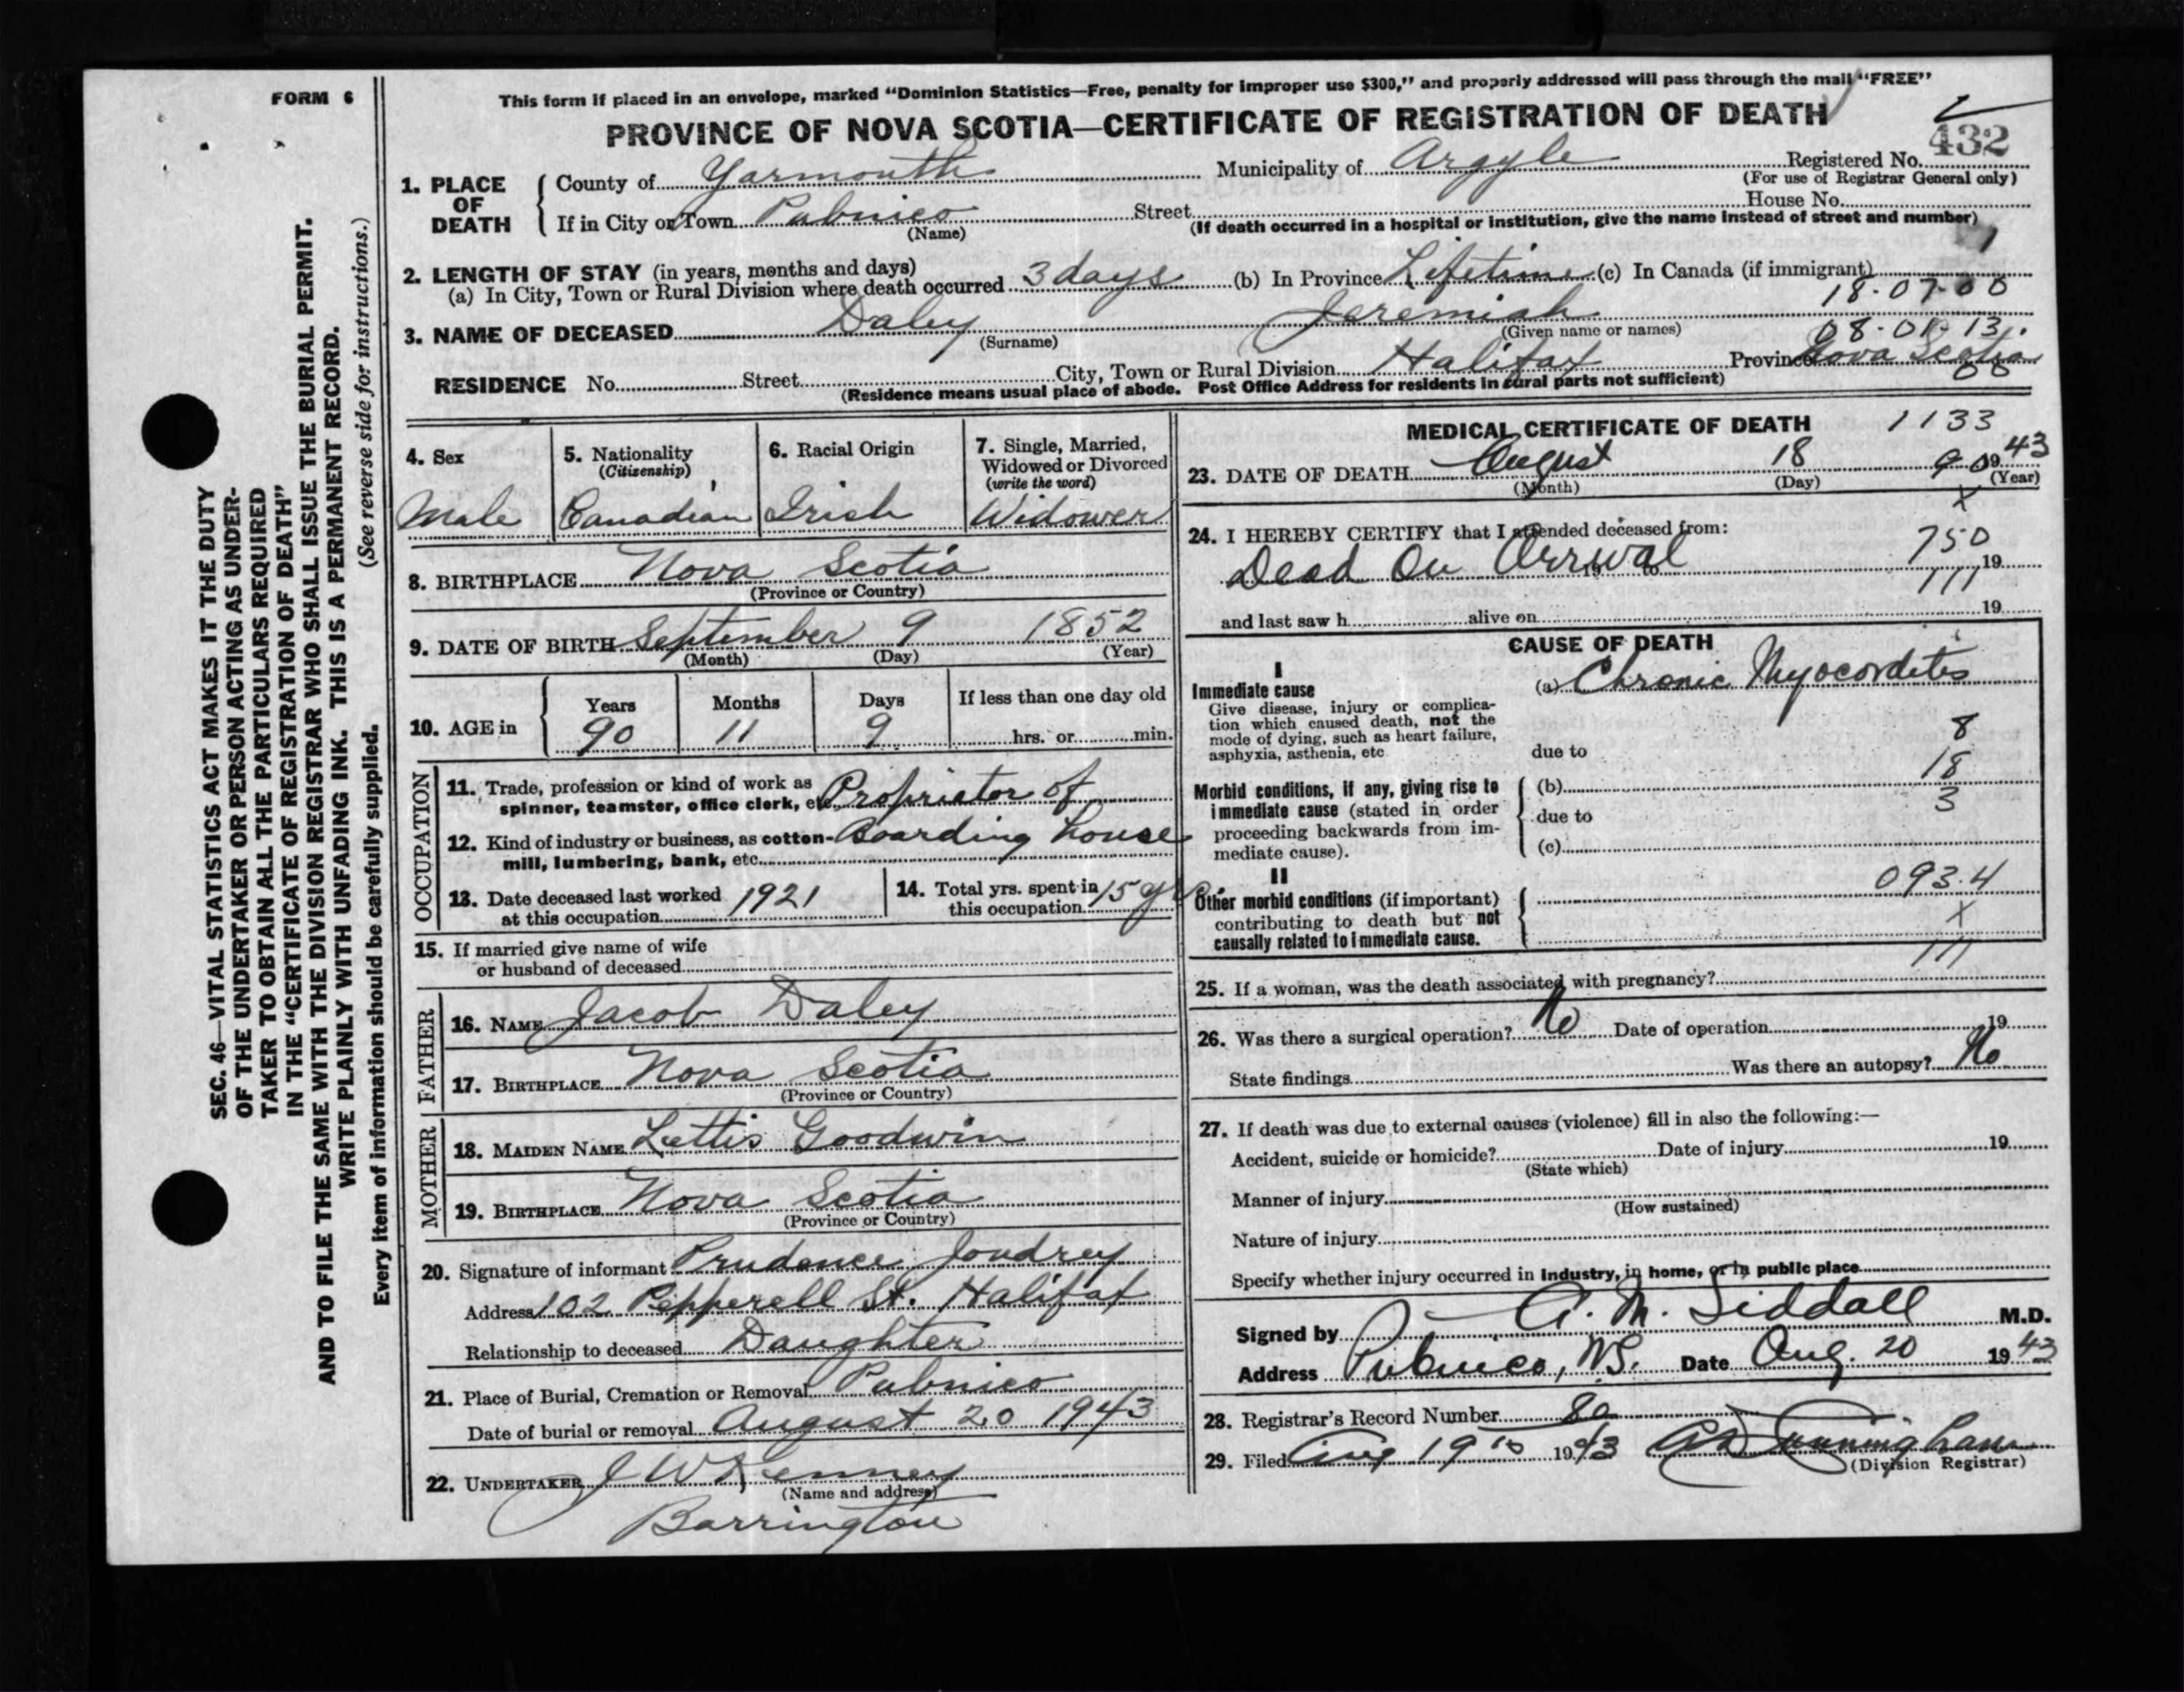 FORM 6
This form if placed in an envelope, marked "Dominion Statistics—Free, penalty for improper use $300," and properly addressed will pass through the mail "FREE"
PROVINCE OF NOVA SCOTIA—CERTIFICATE OF REGISTRATION OF DEATH
432
1. PLACE OF DEATH
County of Yarmouth Municipality of Argyle Registered No.
(For use of Registrar General only)
If in City or Town Pubnico Street House No.
(Name) (If death occurred in a hospital or institution, give the name instead of street and number)
1
2. LENGTH OF STAY (in years, months and days)
(a) In City, Town or Rural Division where death occurred 3 days (b) In Province Lifetime (c) In Canada (if immigrant)
18-07-00
3. NAME OF DECEASED Daley Jeremiah
(Surname) (Given name or names) 08-01-13
RESIDENCE No. Street City, Town or Rural Division Halifax Province Nova Scotia
(Residence means usual place of abode. Post Office Address for residents in rural parts not sufficient) 00
4. Sex
Male
5. Nationality
(Citizenship)
Canadian
6. Racial Origin
Irish
7. Single, Married,
Widowed or Divorced
(write the word)
Widower
8. BIRTHPLACE Nova Scotia
(Province or Country)
9. DATE OF BIRTH September 9 1852
(Month) (Day) (Year)
10. AGE in
Years Months Days If less than one day old
90 11 9 hrs. or min.
OCCUPATION
11. Trade, profession or kind of work as
spinner, teamster, office clerk, etc. Proprietor of
12. Kind of industry or business, as cotton- Boarding house
mill, lumbering, bank, etc.
13. Date deceased last worked 1921
at this occupation
14. Total yrs. spent in
this occupation 15 yrs
15. If married give name of wife
or husband of deceased
FATHER
16. NAME Jacob Daley
17. BIRTHPLACE Nova Scotia
(Province or Country)
MOTHER
18. MAIDEN NAME Lettis Goodwin
19. BIRTHPLACE Nova Scotia
(Province or Country)
20. Signature of informant Prudence Joudrey
Address 102 Pepperell St. Halifax
Relationship to deceased Daughter
21. Place of Burial, Cremation or Removal Pubnico
Date of burial or removal August 20 1943
22. UNDERTAKER J W Kenney
(Name and address)
Barrington
MEDICAL CERTIFICATE OF DEATH 1133
23. DATE OF DEATH August 18 90 1943
(Month) (Day) (Year)
X
24. I HEREBY CERTIFY that I attended deceased from:
750
Dead On Arrival 19 to 19
111
and last saw h alive on 19
CAUSE OF DEATH
I
Immediate cause
Give disease, injury or complica-
tion which caused death, not the
mode of dying, such as heart failure,
asphyxia, asthenia, etc
(a) Chronic Myocarditis
8
due to
18
Morbid conditions, if any, giving rise to
immediate cause (stated in order
proceeding backwards from im-
mediate cause).
(b)
3
due to
(c)
II
Other morbid conditions (if important)
contributing to death but not
causally related to immediate cause.
093.4
X
111
25. If a woman, was the death associated with pregnancy?
26. Was there a surgical operation? No Date of operation 19
State findings Was there an autopsy? No
27. If death was due to external causes (violence) fill in also the following:—
Accident, suicide or homicide? Date of injury 19
(State which)
Manner of injury
(How sustained)
Nature of injury
Specify whether injury occurred in industry, in home, or in public place
Signed by A. M. Siddall M.D.
Address Pubnico, NS. Date Aug. 20 1943
28. Registrar's Record Number 80
29. Filed Aug 19th 1943 Cunningham
(Division Registrar)
SEC. 46—VITAL STATISTICS ACT MAKES IT THE DUTY
OF THE UNDERTAKER OR PERSON ACTING AS UNDER-
TAKER TO OBTAIN ALL THE PARTICULARS REQUIRED
IN THE "CERTIFICATE OF REGISTRATION OF DEATH"
AND TO FILE THE SAME WITH THE DIVISION REGISTRAR WHO SHALL ISSUE THE BURIAL PERMIT.
WRITE PLAINLY WITH UNFADING INK. THIS IS A PERMANENT RECORD.
(See reverse side for instructions.)
Every item of information should be carefully supplied.